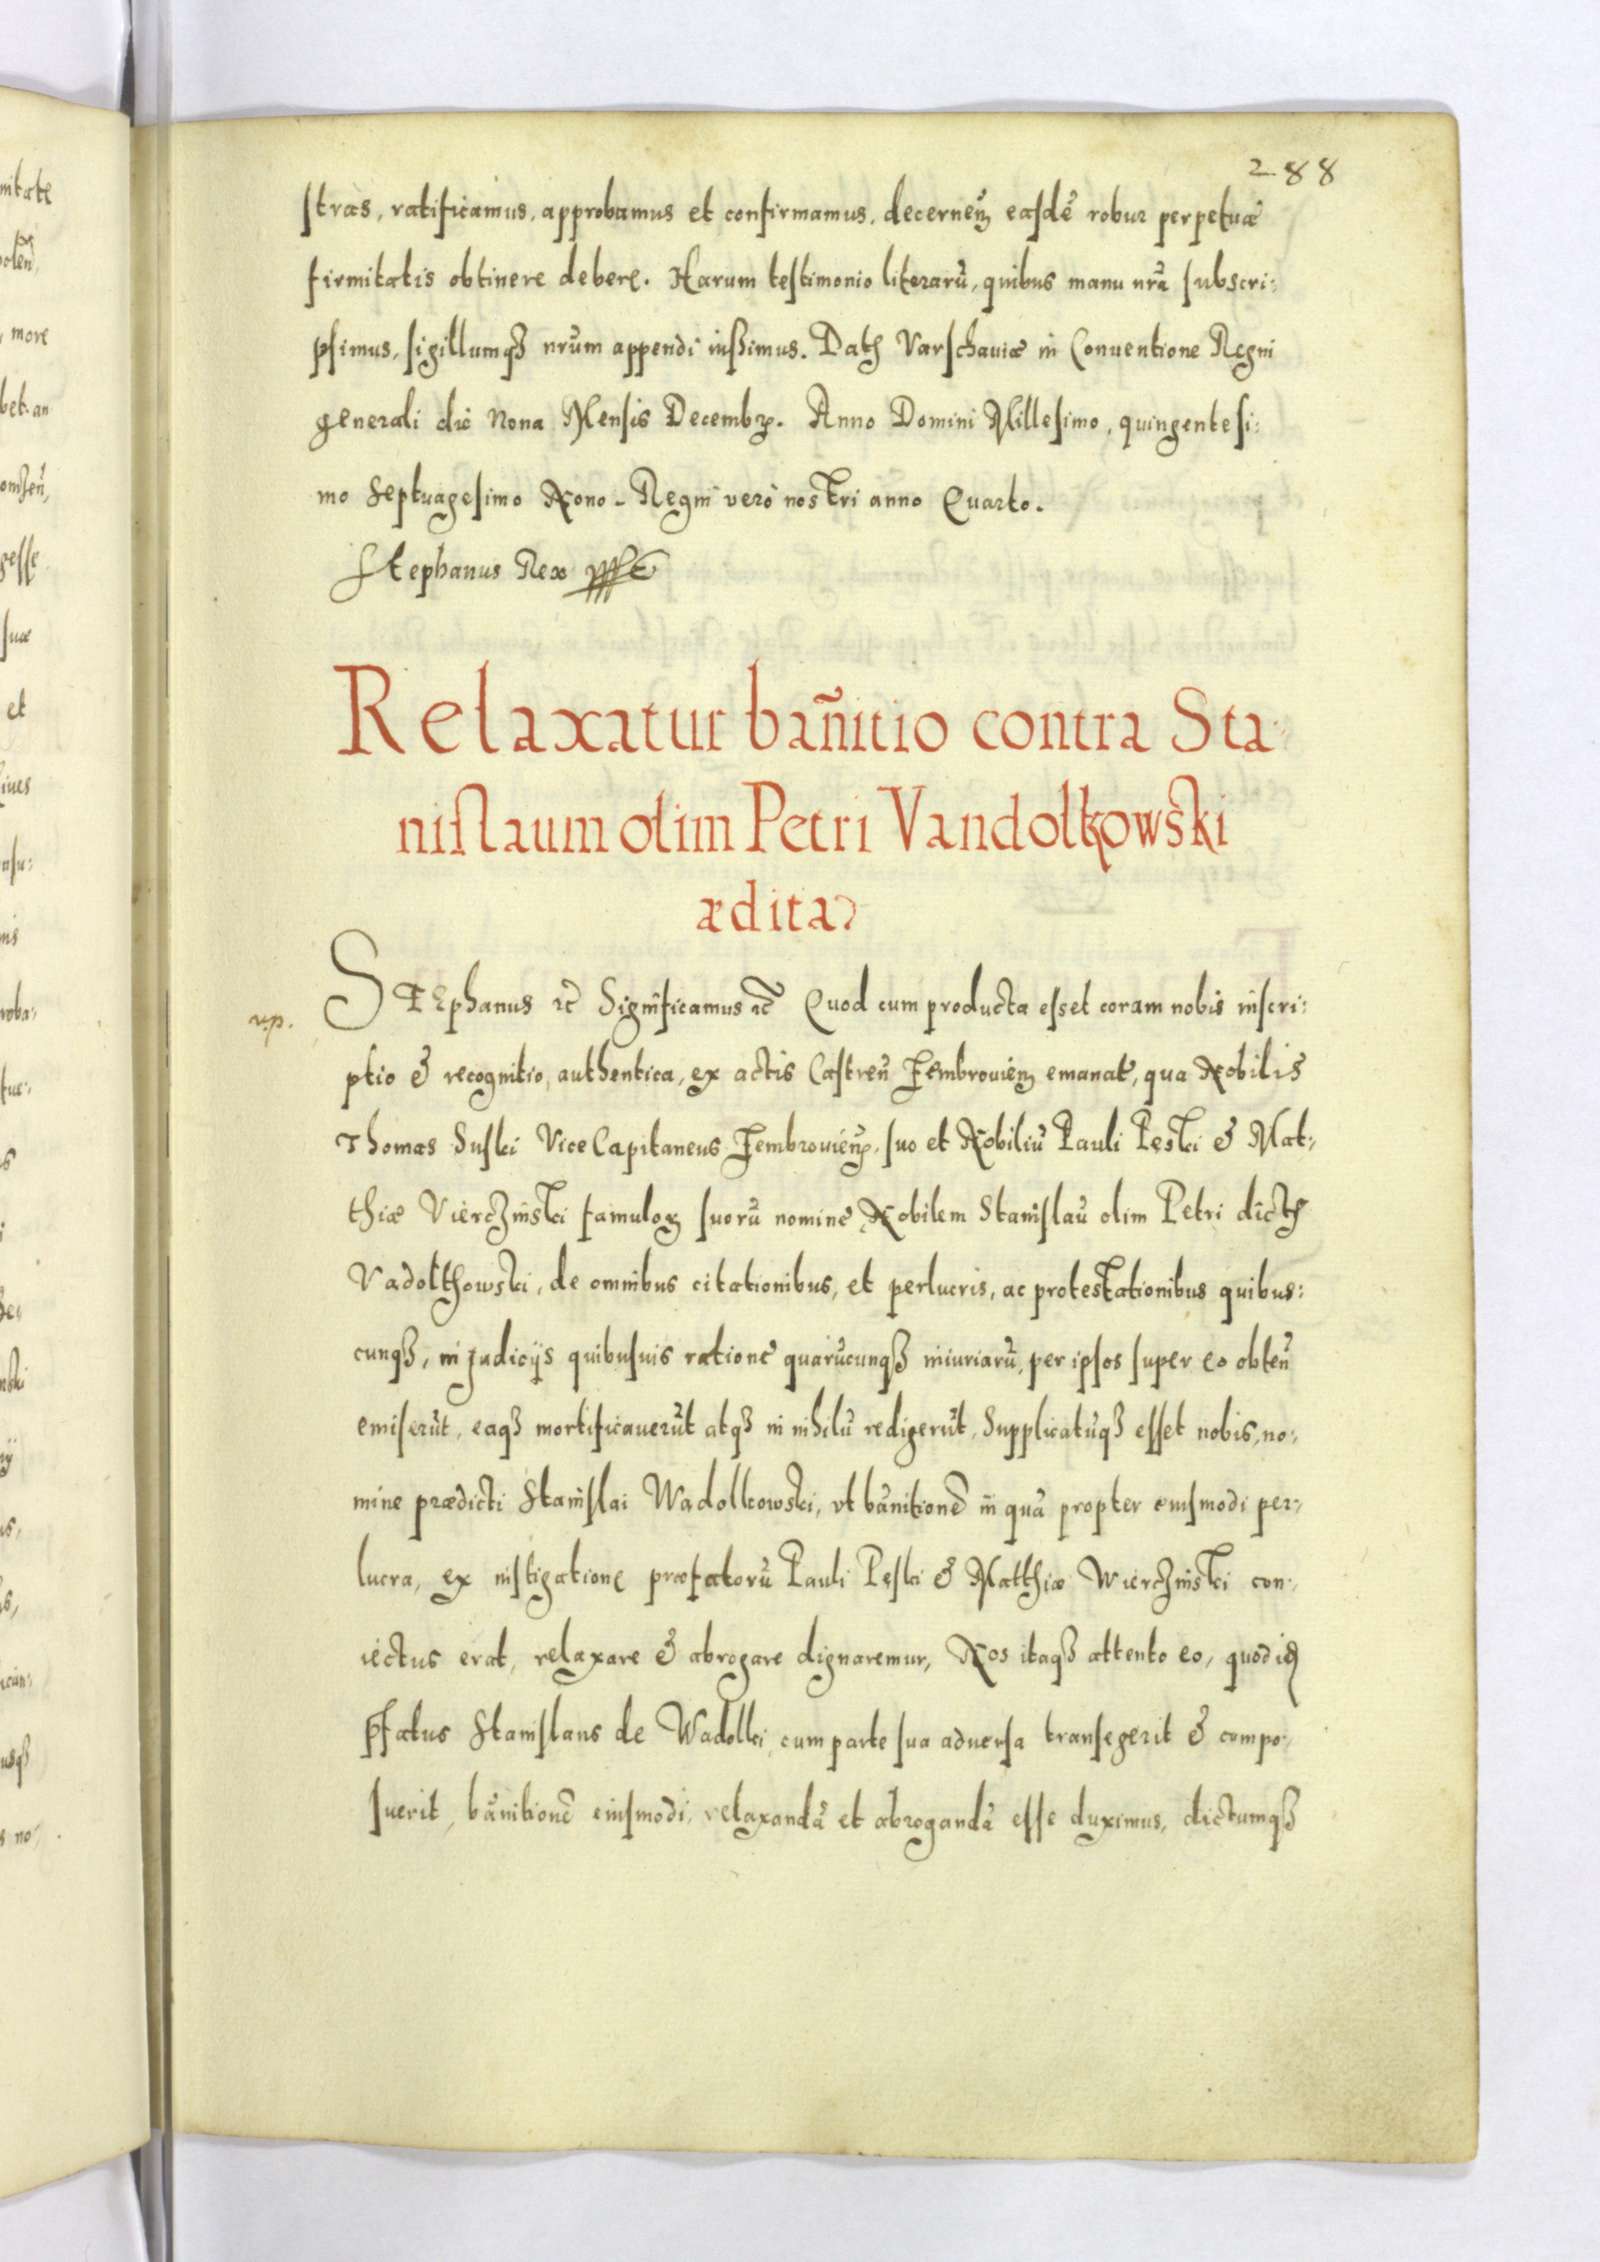 288
stras, ratificamus, approbamus et confirmamus, decerneñ easdē robur perpetuæ
firmitatis obtinere debere. Harum testimonio literarū, quibus manu nrā subscri:
psimus, sigillumqȝ nrūm appendi iussimus. Datȝ Varschauiæ in Conuentione Regni
generali die Nona Mensis Decembr. Anno Domini Millesimo, quingentesi:
mo Septuagesimo Nono. Regni vero nostri anno Quarto.
Stephanus Rex
Relaxatur bañitio contra Sta:
nislaum olim Petri Vandolkowski
ædita
Stephanus ꝛc̄ Significamus ꝛc̄ Quod cum producta esset coram nobis inscri:
ptio & recognitio, authentica, ex actis Castreñ Zembrouieñ emanat, qua Nobilis
Thomas Suski ViceCapitaneus Zembrouieñ, suo et Nobiliū Pauli Peski & Mat:
thiæ Vierczinski famuloꝝ suorū nomine Nobilem Stanislaū olim Petri dictȝ
Vadolkowski, de omnibus citationibus, et perlucris, ac protestationibus quibus:
cunqȝ, in judicijs quibusuis ratione quarūcunqȝ iniuriarū, per ipsos super eo obteñ
emiserūt, eaqȝ mortificauerūt atqȝ in nihilū redigerūt, Supplicatūqȝ esset nobis, no:
mine prædicti Stanislai Wadolkowski, vt bānitionē in quā propter eiusmodi per:
lucra, ex instigatione præfatorū Pauli Peski & Matthiæ Wierczinski con:
iectus erat, relaxare & abrogare dignaremur, Nos itaqȝ attento eo, quod idē
p̄fatus Stanislaus de Wadolki, cum parte sua aduersa transegerit & compo:
suerit, bānitionē eiusmodi, relaxandā et abrogandā esse duximus, dictumqȝ